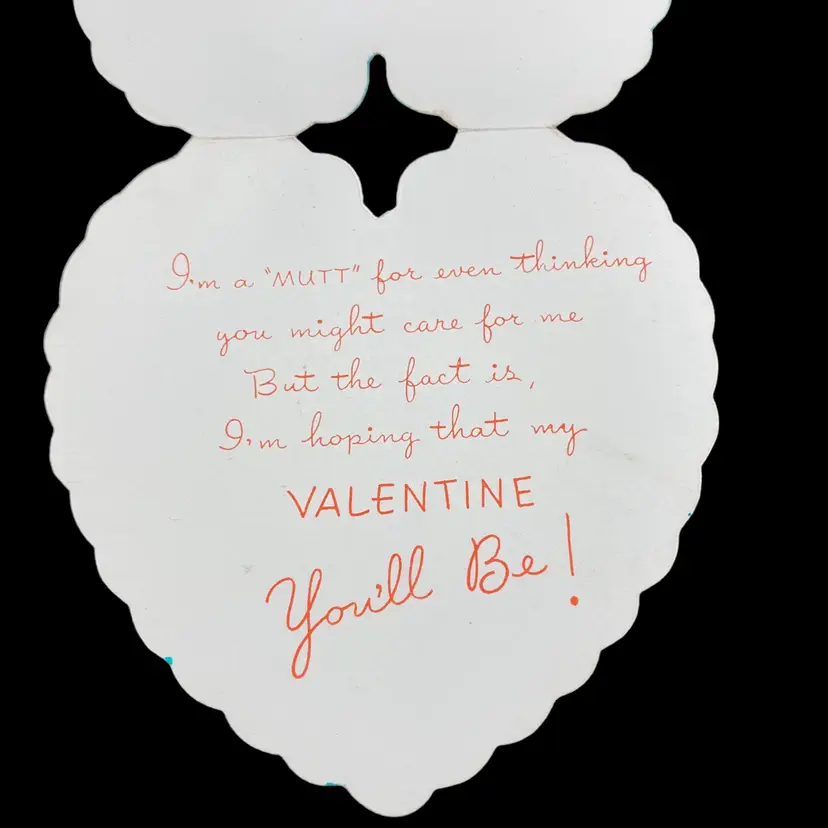 I'm a "MUTT" for even thinking
you might care for me
But the fact is,
I'm hoping that my
VALENTINE
You'll Be!